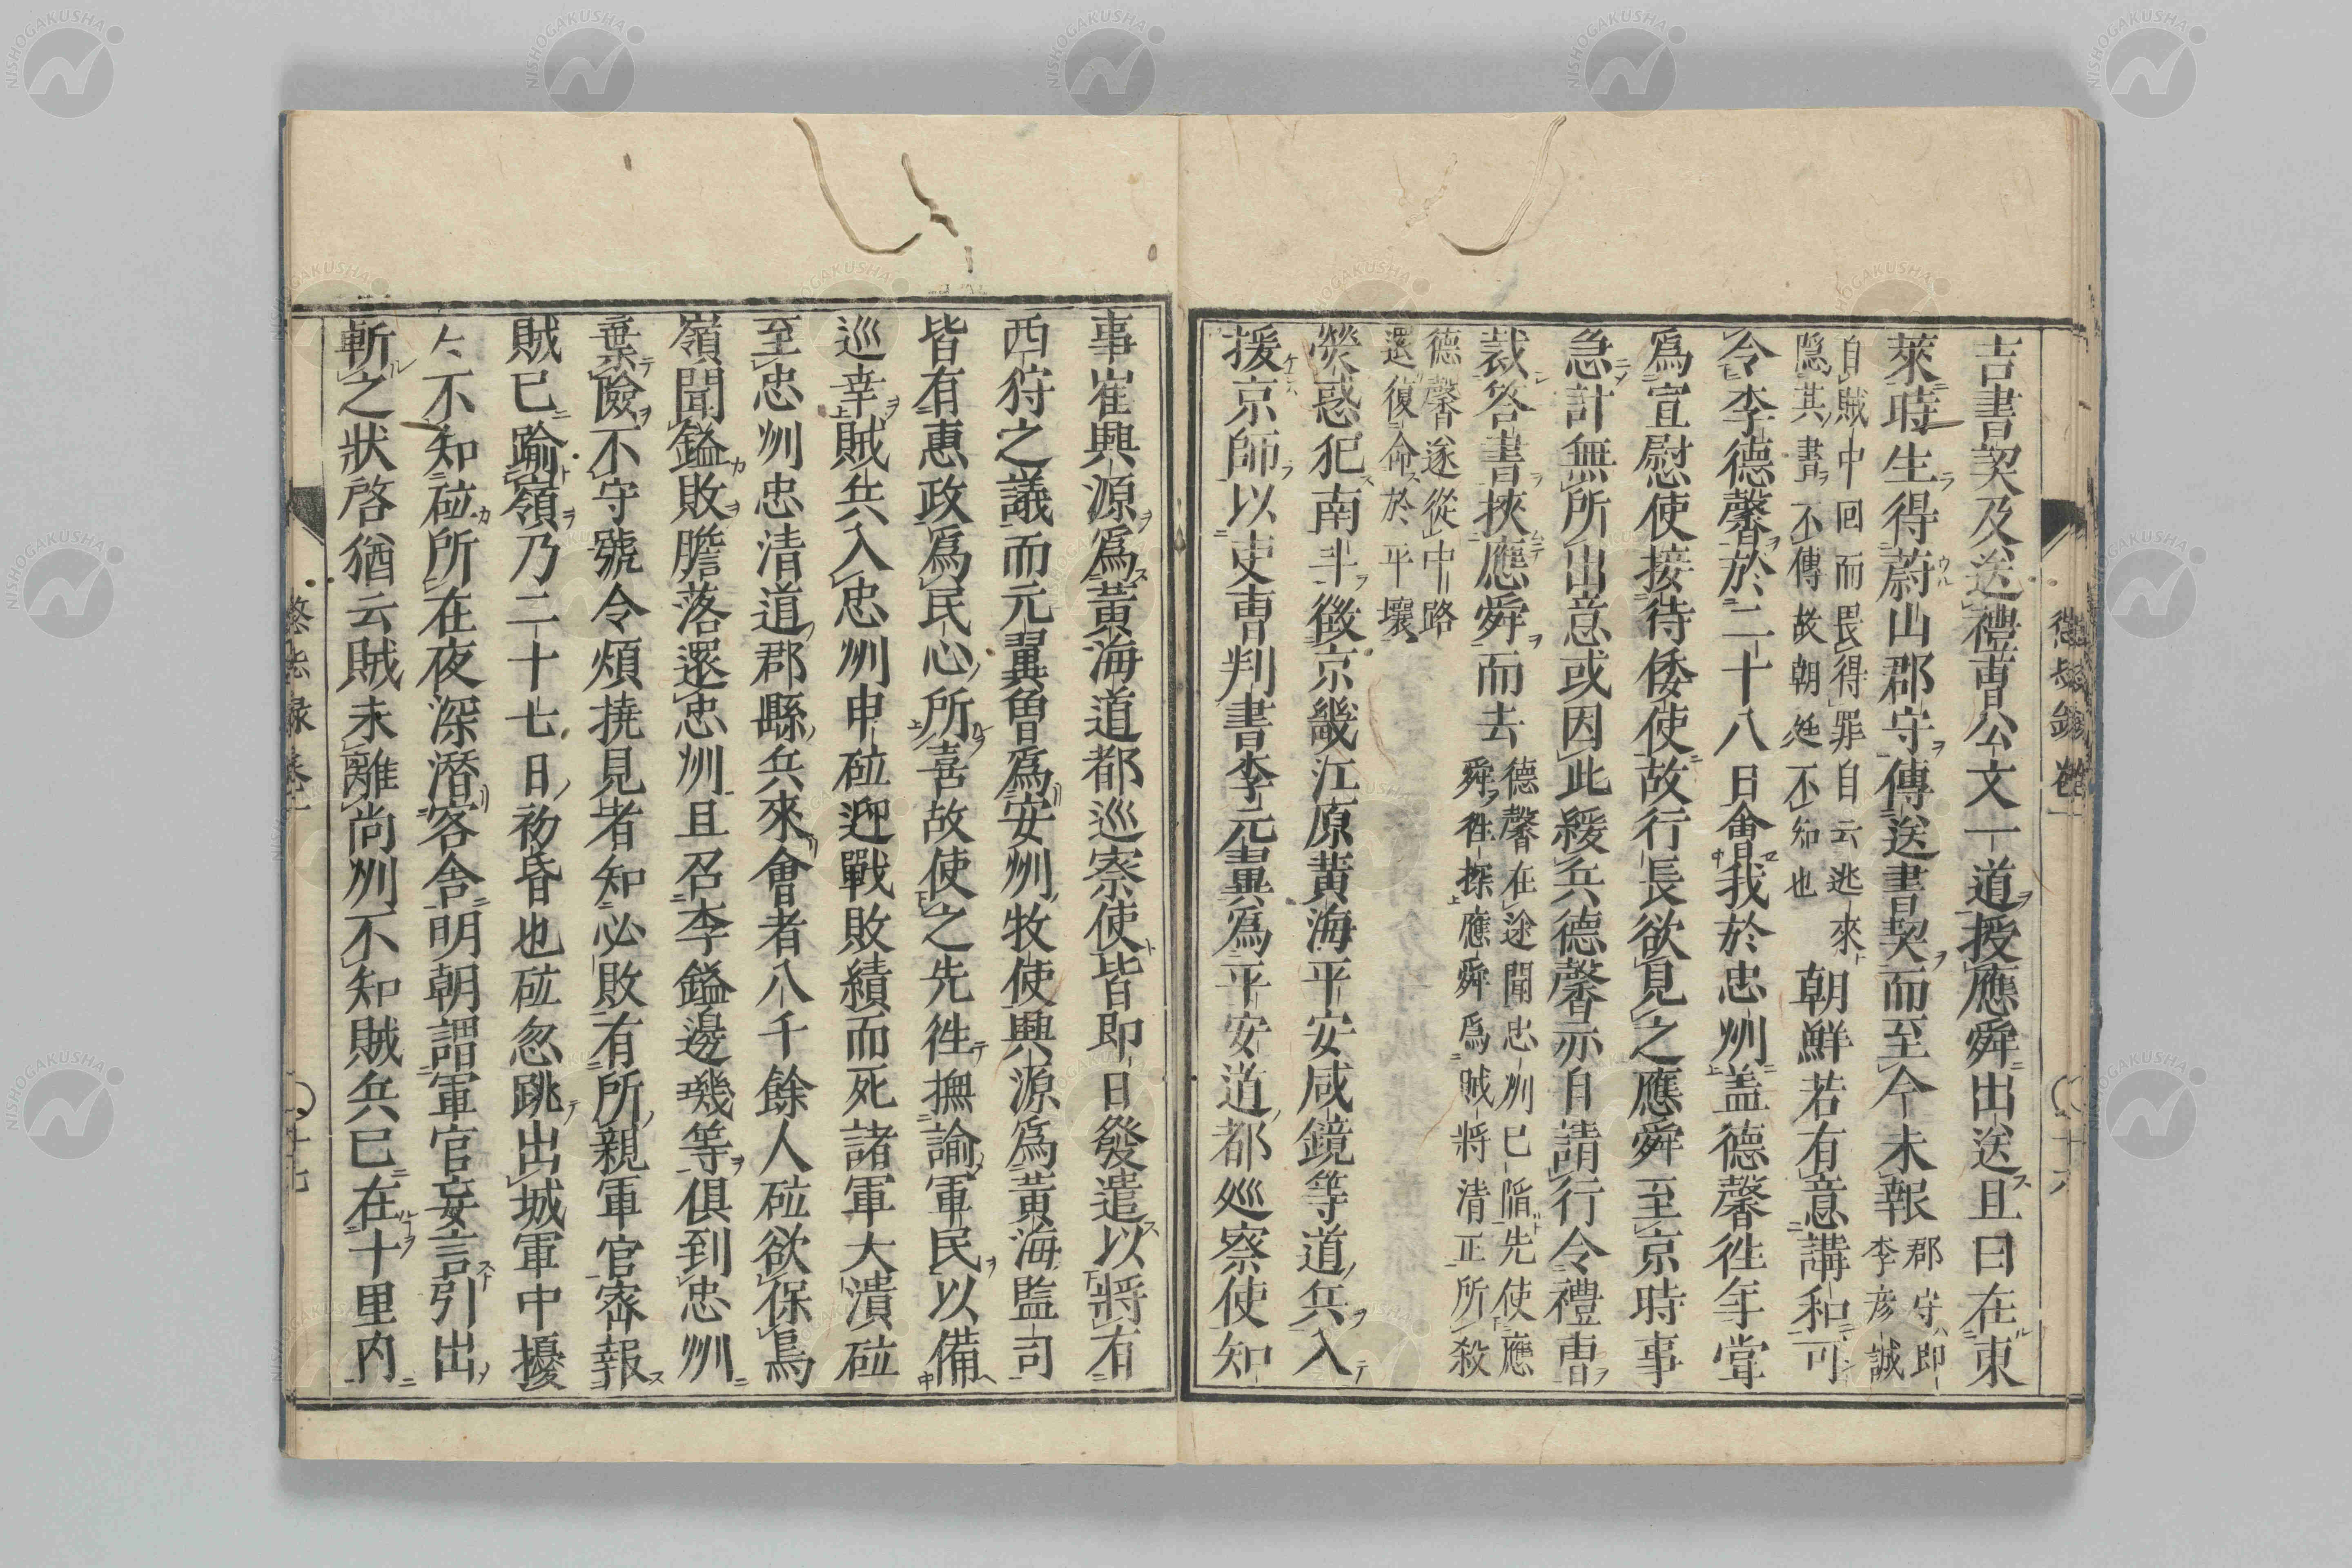 吉書契及送禮曹公文一道授應舜出送且曰在東
萊時生得蔚山郡守傳送書契而至今未報郡守即李彦誠
自賊中回而畏得罪自云逃來
隐其書不傳故朝廷不知也
朝鮮若有意講和可
令李德馨於二十八日會我於忠州盖德馨徃年甞
爲宣慰使接待倭使故行長欲見之應舜至京時事
急計無所出意或因此緩兵德馨亦自請行令禮曹
裁答書挾應舜而去
德馨在途聞忠州已陥先使應
舜徃探應舜爲賊將清正所殺
德馨遂從中路
還復命於平壤
熒惑犯南斗徴京畿江原黄海平安咸鏡等道兵入
援京師以吏曹判書李元翼爲平安道都巡察使知
事崔興源爲黄海道都巡察使皆即日發遣以將有
西狩之議而元翼曽爲安州牧使興源爲黄海監司
皆有惠政爲民心所喜故使之先徃撫諭軍民以備
巡幸賊兵入忠州申砬迎戰敗績而死諸軍大潰砬
至忠州忠清道郡縣兵來會者八千餘人砬欲保鳥
嶺聞鎰敗膽落還忠州且召李鎰邊璣等俱到忠州
棄險不守號令煩撓見者知必敗有所親軍官宻報
賊已踰嶺乃二十七日初昏也砬忽跳出城軍中擾
々不知砬所在夜深潜客舎明朝謂軍官妄言引出
斬之狀啓猶云賊未離尚州不知賊兵已在十里内
懲毖録 卷一
十六
懲毖録 卷一
十七
NISHOGAKUSHA